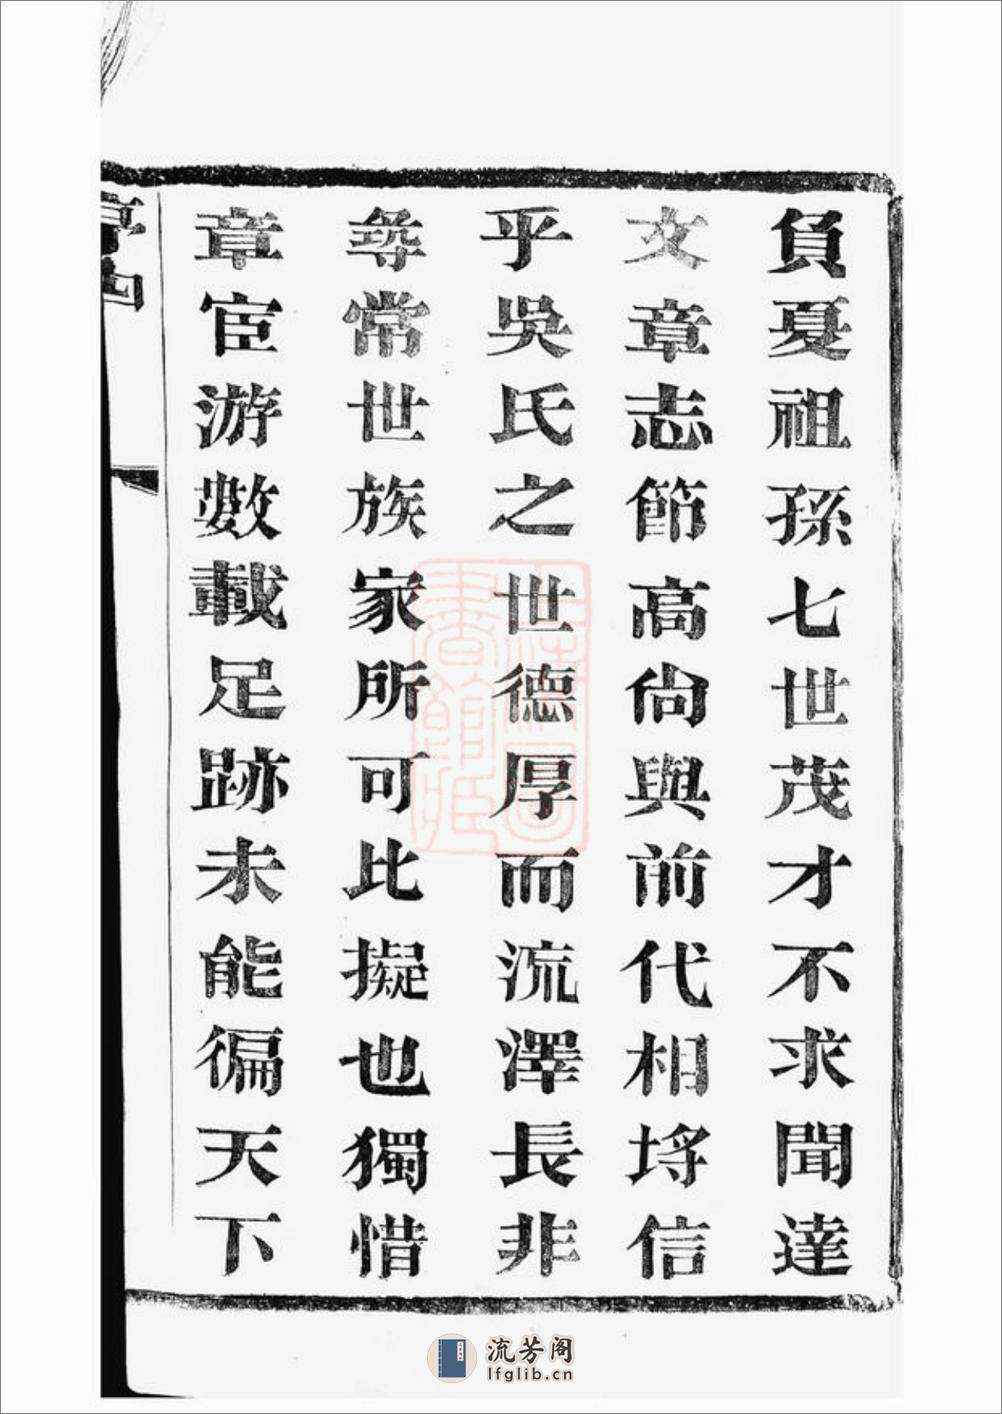 負夏祖孫七世茂才不求聞達
文章志節高尙與前代相埒信
乎吳氏之世德厚而流澤長非
尋常世族家所可比擬也獨惜
章宦游數載足跡未能徧天下
流芳阁
lfglib.cn